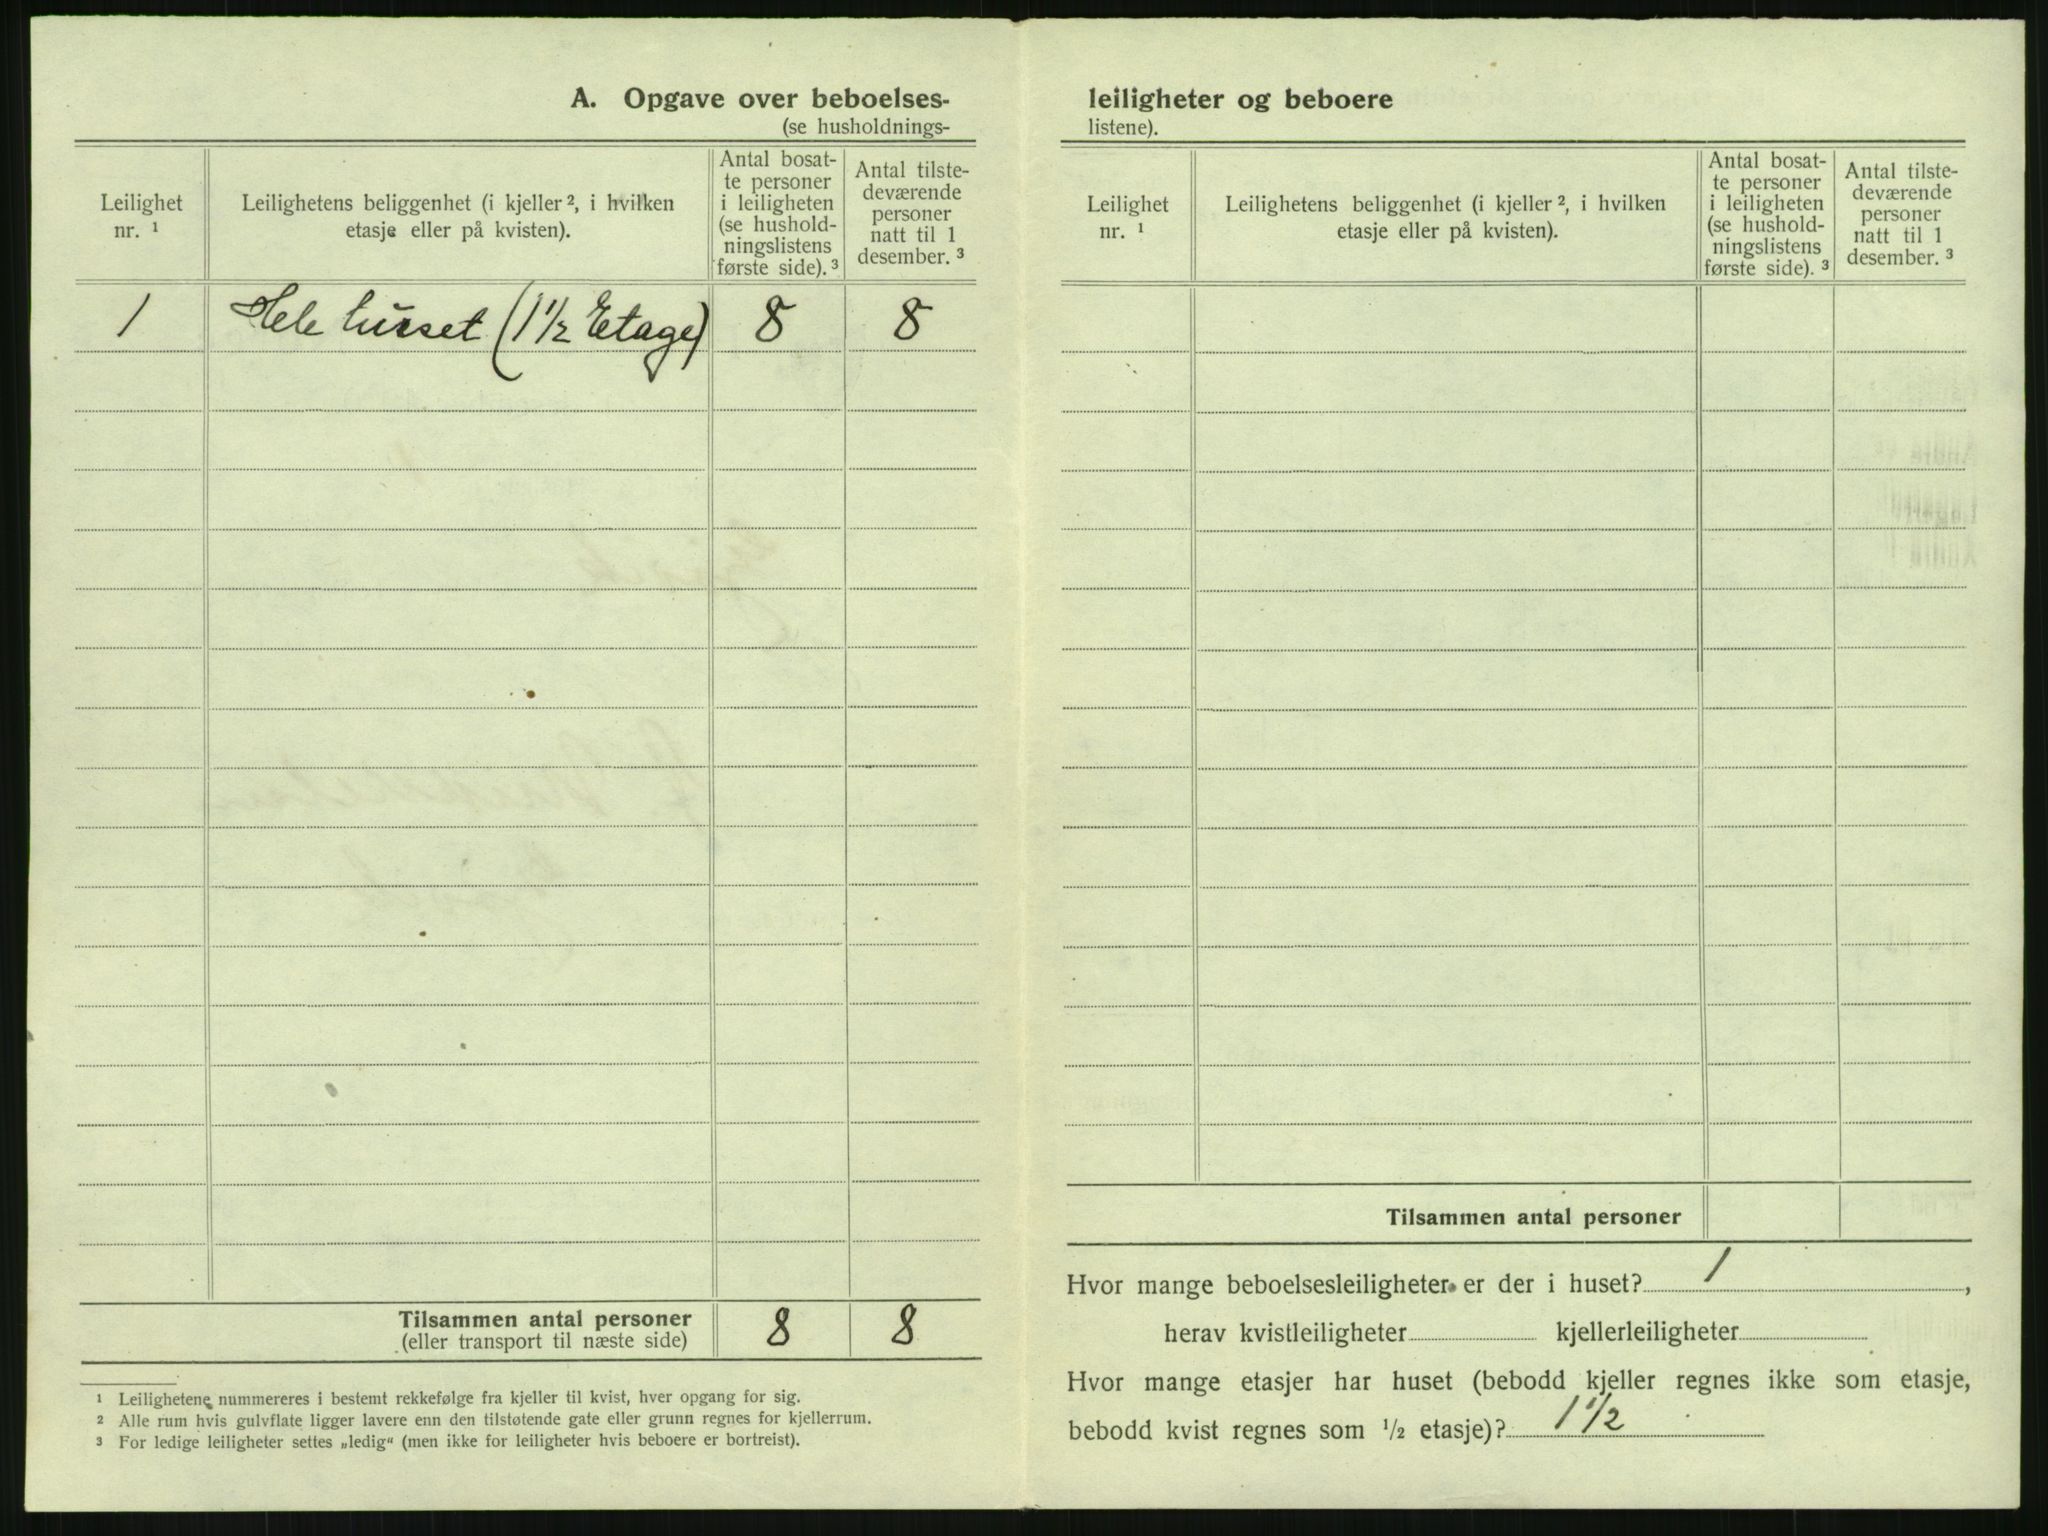 A. Opgave over beboelses-
(se husholdnings-
Leilighet
nr. ¹
Leilighetens beliggenhet (i kjeller ², i hvilken
etasje eller på kvisten).
Antal bosat-
te personer
i leiligheten
(se hushold-
ningslistens
første side). ³
Antal tilste-
deværende
personer
natt til 1
desember. ³
1 Hele huset (1 1/2 Etage) 8 8
Tilsammen antal personer
(eller transport til næste side) 8 8
¹ Leilighetene nummereres i bestemt rekkefølge fra kjeller til kvist, hver opgang for sig.
² Alle rum hvis gulvflate ligger lavere enn den tilstøtende gate eller grunn regnes for kjellerrum.
³ For ledige leiligheter settes „ledig“ (men ikke for leiligheter hvis beboere er bortreist).
leiligheter og beboere
listene).
Leilighet
nr. ¹
Leilighetens beliggenhet (i kjeller ², i hvilken
etasje eller på kvisten).
Antal bosat-
te personer
i leiligheten
(se hushold-
ningslistens
første side). ³
Antal tilste-
deværende
personer
natt til 1
desember. ³
Tilsammen antal personer
Hvor mange beboelsesleiligheter er der i huset? 1,
herav kvistleiligheter kjellerleiligheter
Hvor mange etasjer har huset (bebodd kjeller regnes ikke som etasje,
bebodd kvist regnes som 1/2 etasje)? 1 1/2